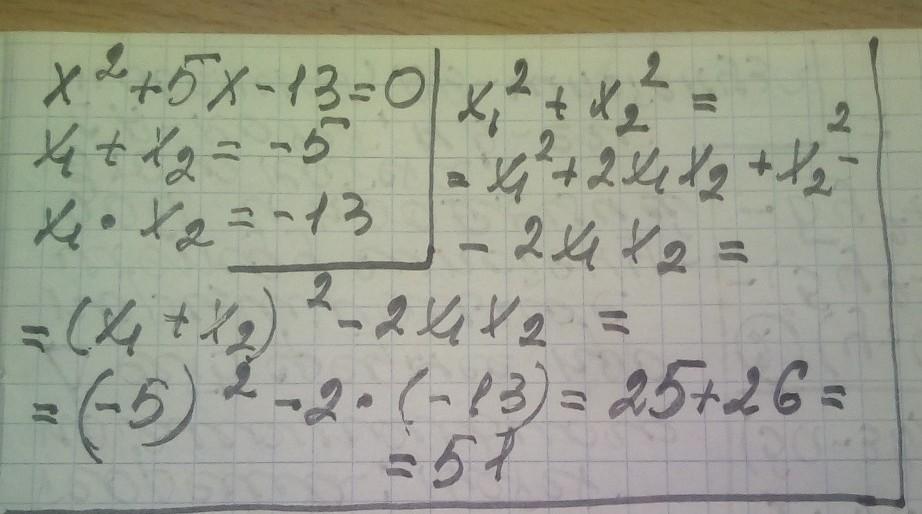 x² + 5x - 13 = 0
x₁ + x₂ = -5
x₁ · x₂ = -13
x₁² + x₂² =
= x₁² + 2x₁x₂ + x₂² -
- 2x₁x₂ =
= (x₁ + x₂)² - 2x₁x₂ =
= (-5)² - 2 · (-13) = 25 + 26 =
= 51